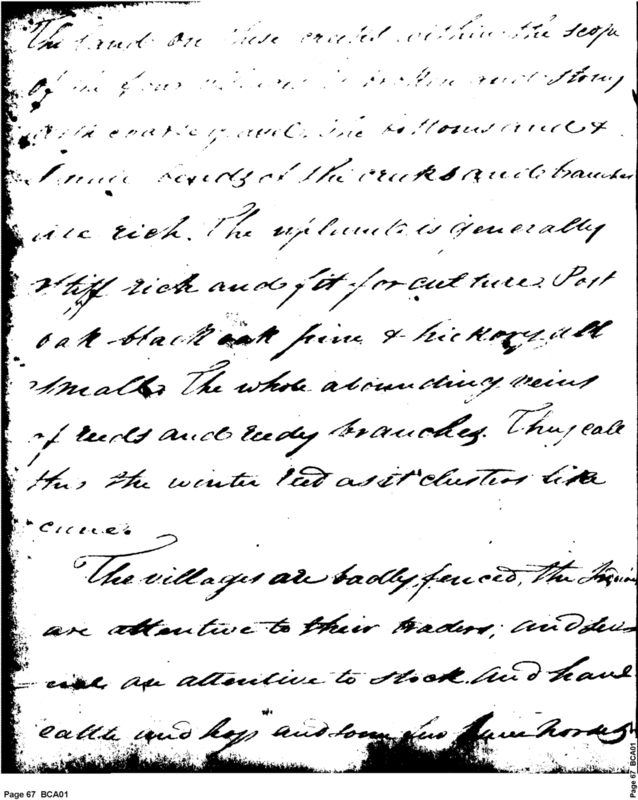 The land on these creeks within the scope
of the four villages is broken and stony
with coarse gravel the bottoms and
bends of the creeks and branches
are rich. The upland is generally
stiff rich and fit for culture. Post
oak black oak pine & hickory all
small. The whole abounding veins
of reeds and reedy branches. They call
this the winter reed as it clusters like
cane.
The villages are badly fenced, the Indians
are attentive to their traders, and seve
are attentive to stock and have
cattle and hogs and some few have horses
Page 67 BCA01
Page 67 BCA01